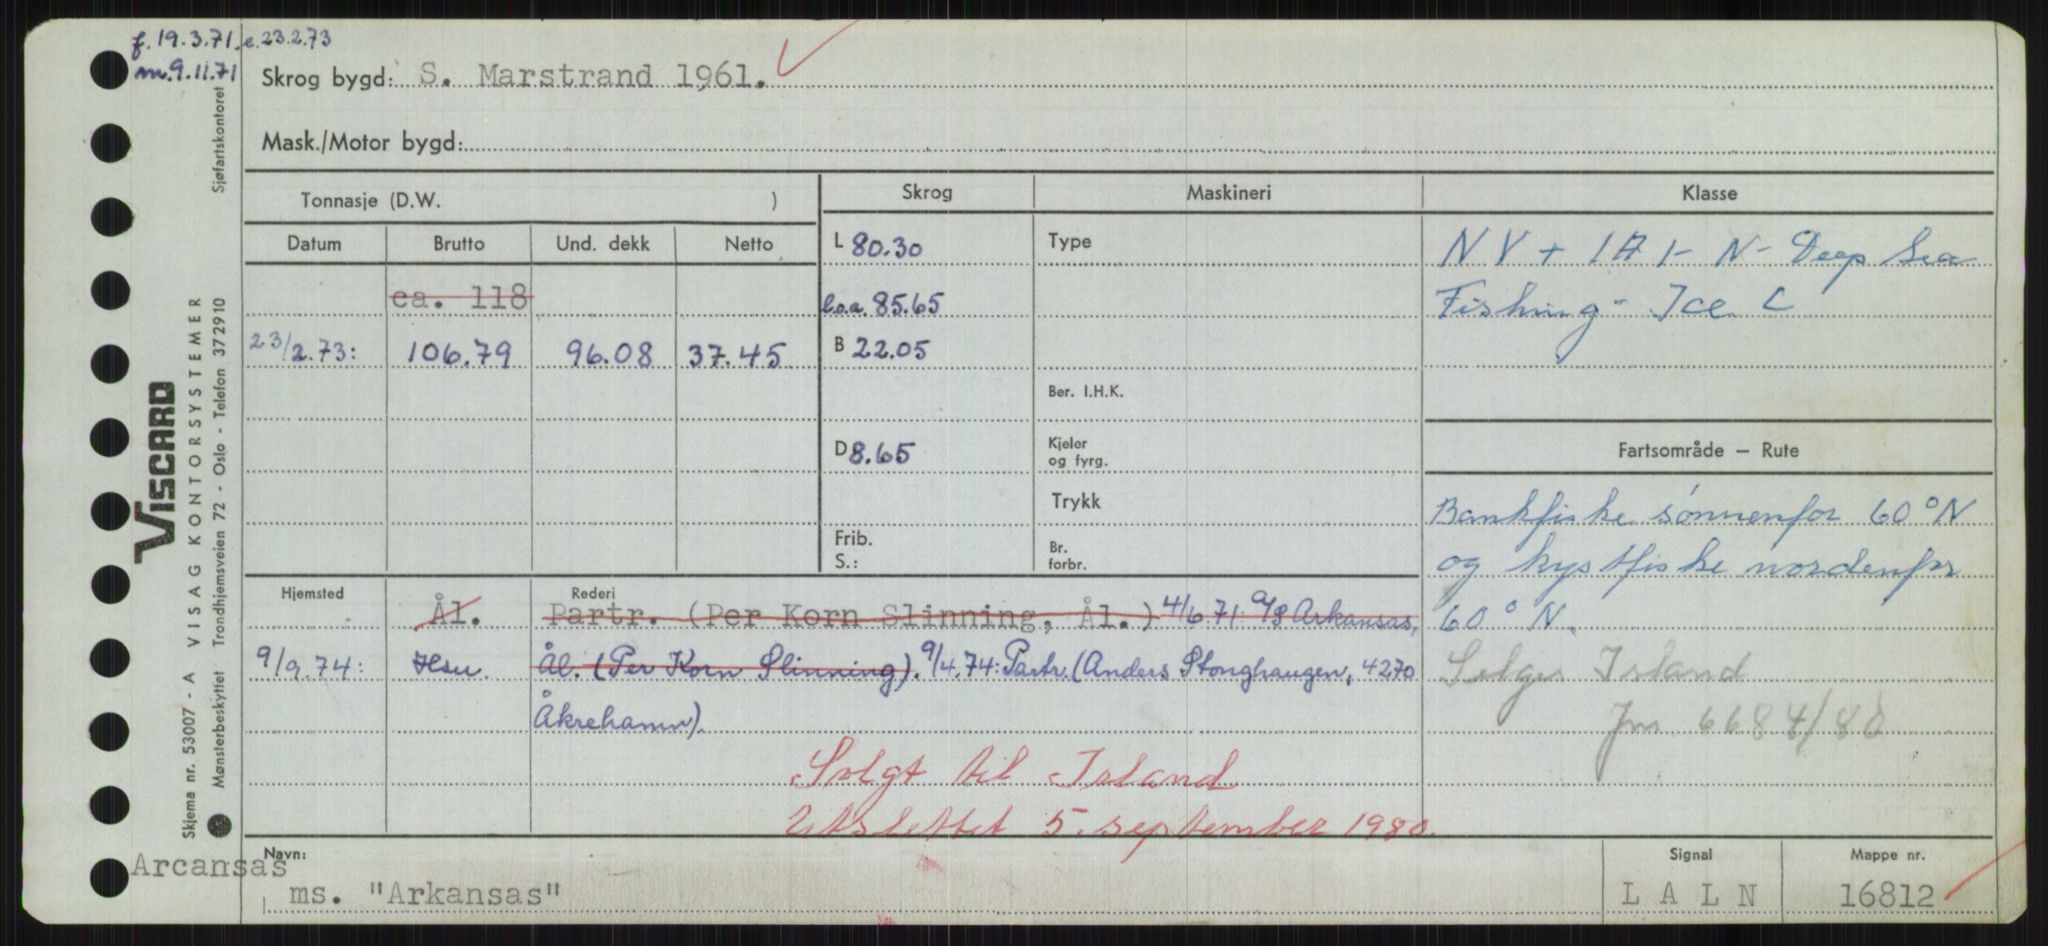 f. 19.3.71. e. 23.2.73
m. 9.11.71
Skrog bygd: S. Marstrand 1961.
Mask./Motor bygd:
Tonnasje (D.W. )
Skrog
Maskineri
Klasse
Datum
Brutto
Und. dekk
Netto
L 80.30
Type
NV + 1A1 - N - Deep Sea
ca. 118
l.o.a. 85.65
Fishing - Ice C
23/2.73: 106.79 96.08 37.45
B 22.05
Ber. I.H.K.
D 8.65
Kjeler
og fyrg.
Fartsområde — Rute
Trykk
Bankfiske sønnenfor 60°N
Frib.
S.:
Br.
forbr.
og kystfiske nordenfor
60° N.
Hjemsted
Rederi
Ål. Partr. (Per Korn Slinning, Ål.) 4/6.71: a/s Arkansas,
9/9.74: Hsu. Ål. (Per Korn Slinning). 9/4.74: Partr. (Anders Stonghaugen, 4270
Åkrehamn).
Selges Island
Jnr. 6684/80
Solgt til Island
Utslettet 5. september 1980.
Arcansas
Navn:
ms. "Arkansas"
Signal
LALN
Mappe nr.
16812
VISCARD
VISAG KONTORSYSTEMER
Skjema nr. 53007 - A
Mønsterbeskyttet Trondhjemsveien 72 - Oslo - Telefon 372910
Sjøfartskontoret